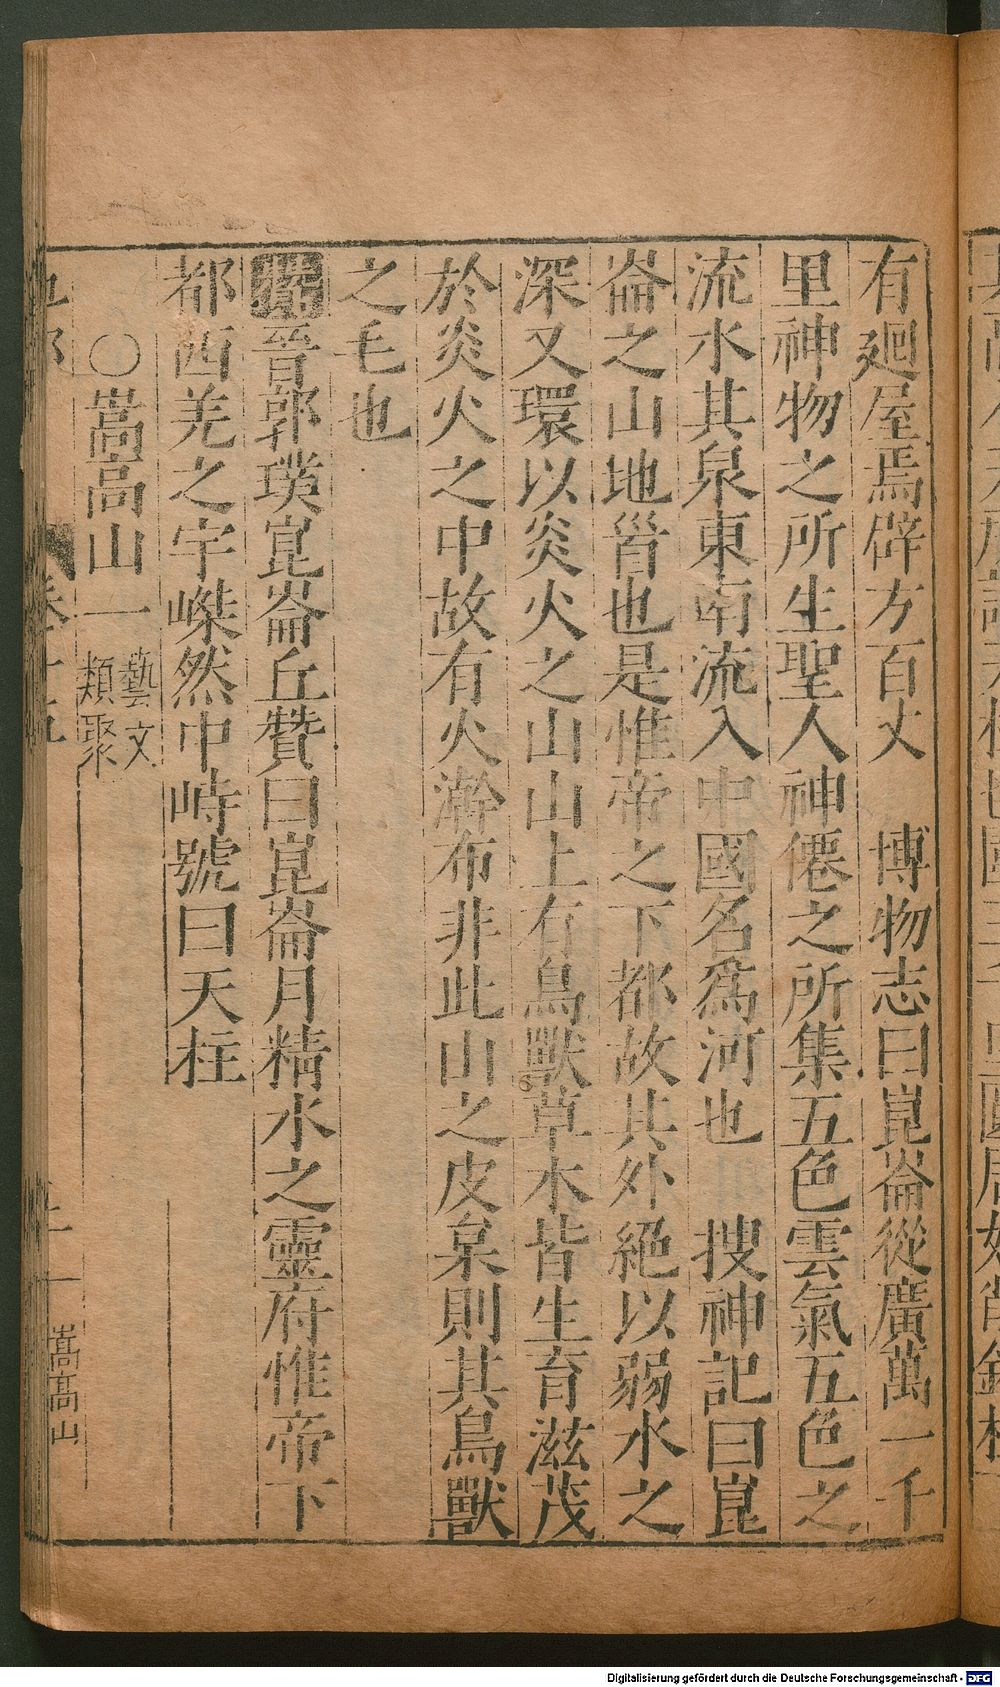 有廻屋焉辟方百丈　博物志曰崑崙從廣萬一千
里神物之所生聖人神僊之所集五色雲氣五色之
流水其泉東南流入中國名爲河也　搜神記曰崑
崙之山地首也是惟帝之下都故其外絕以弱水之
深又環以炎火之山山上有鳥獸草木皆生育滋茂
於炎火之中故有火澣布非此山之皮枲則其鳥獸
之毛也
贊晉郭璞崑崙丘贊曰崑崙月精水之靈府惟帝下
都西羌之宇嵥然中峙號曰天柱
〇嵩高山一 藝文類聚
嵩高山
Digitalisierung gefördert durch die Deutsche Forschungsgemeinschaft - DFG